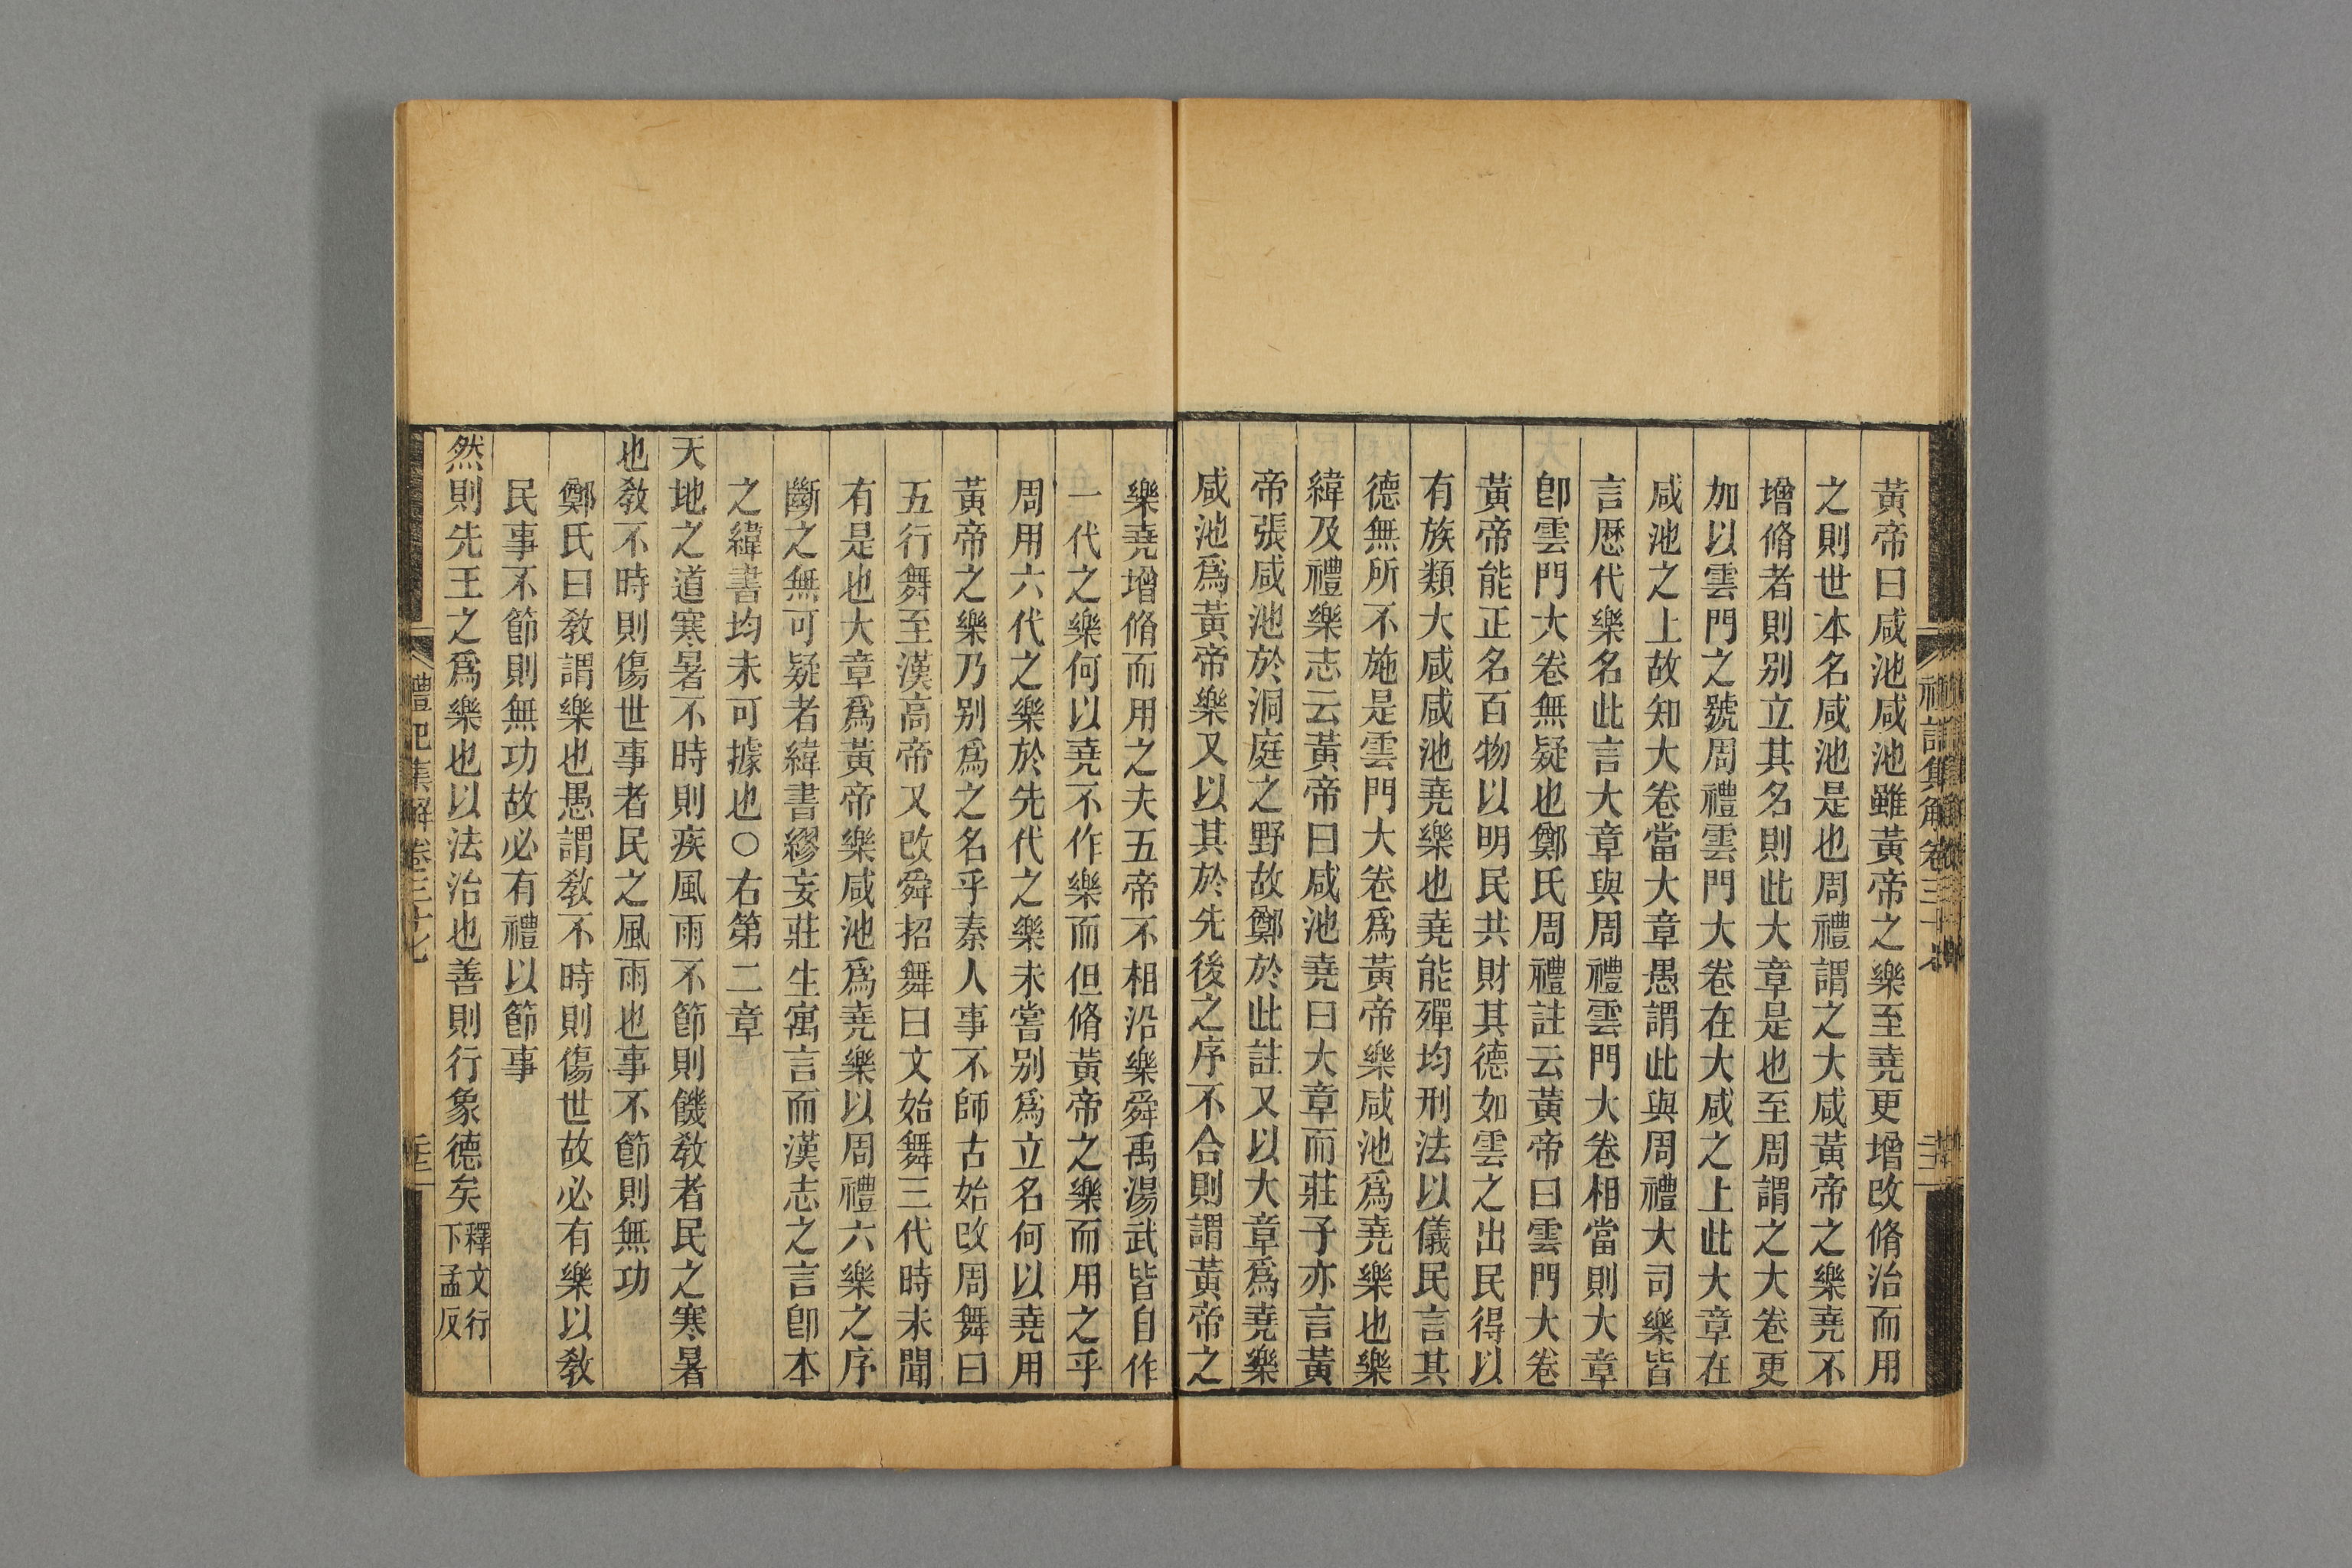 黃帝曰咸池咸池雖黃帝之樂至堯更增改脩治而用
之則世本名咸池是也周禮謂之大咸黃帝之樂堯不
增脩者則别立其名則此大章是也至周謂之大卷更
加以雲門之號周禮雲門大卷在大咸之上此大章在
咸池之上故知大卷當大章愚謂此與周禮大司樂皆
言歷代樂名此言大章與周禮雲門大卷相當則大章
卽雲門大卷無疑也鄭氏周禮註云黃帝曰雲門大卷
黃帝能正名百物以明民共財其德如雲之出民得以
有族類大咸咸池堯樂也堯能殫均刑法以儀民言其
德無所不施是雲門大卷爲黃帝樂咸池爲堯樂也樂
緯及禮樂志云黃帝曰咸池堯曰大章而莊子亦言黃
帝張咸池於洞庭之野故鄭於此註又以大章爲堯樂
咸池爲黃帝樂又以其於先後之序不合則謂黃帝之
樂堯增脩而用之夫五帝不相沿樂舜禹湯武皆自作
一代之樂何以堯不作樂而但脩黃帝之樂而用之乎
周用六代之樂於先代之樂未嘗别爲立名何以堯用
黃帝之樂乃别爲之名乎秦人事不師古始改周舞曰
五行舞至漢高帝又改舜招舞曰文始舞三代時未聞
有是也大章爲黃帝樂咸池爲堯樂以周禮六樂之序
斷之無可疑者緯書繆妄莊生寓言而漢志之言卽本
之緯書均未可據也○右第二章
天地之道寒暑不時則疾風雨不節則饑教者民之寒暑
也教不時則傷世事者民之風雨也事不節則無功
鄭氏曰教謂樂也愚謂教不時則傷世故必有樂以教
民事不節則無功故必有禮以節事
然則先王之爲樂也以法治也善則行象德矣釋文行下孟反
禮記集解卷三十七